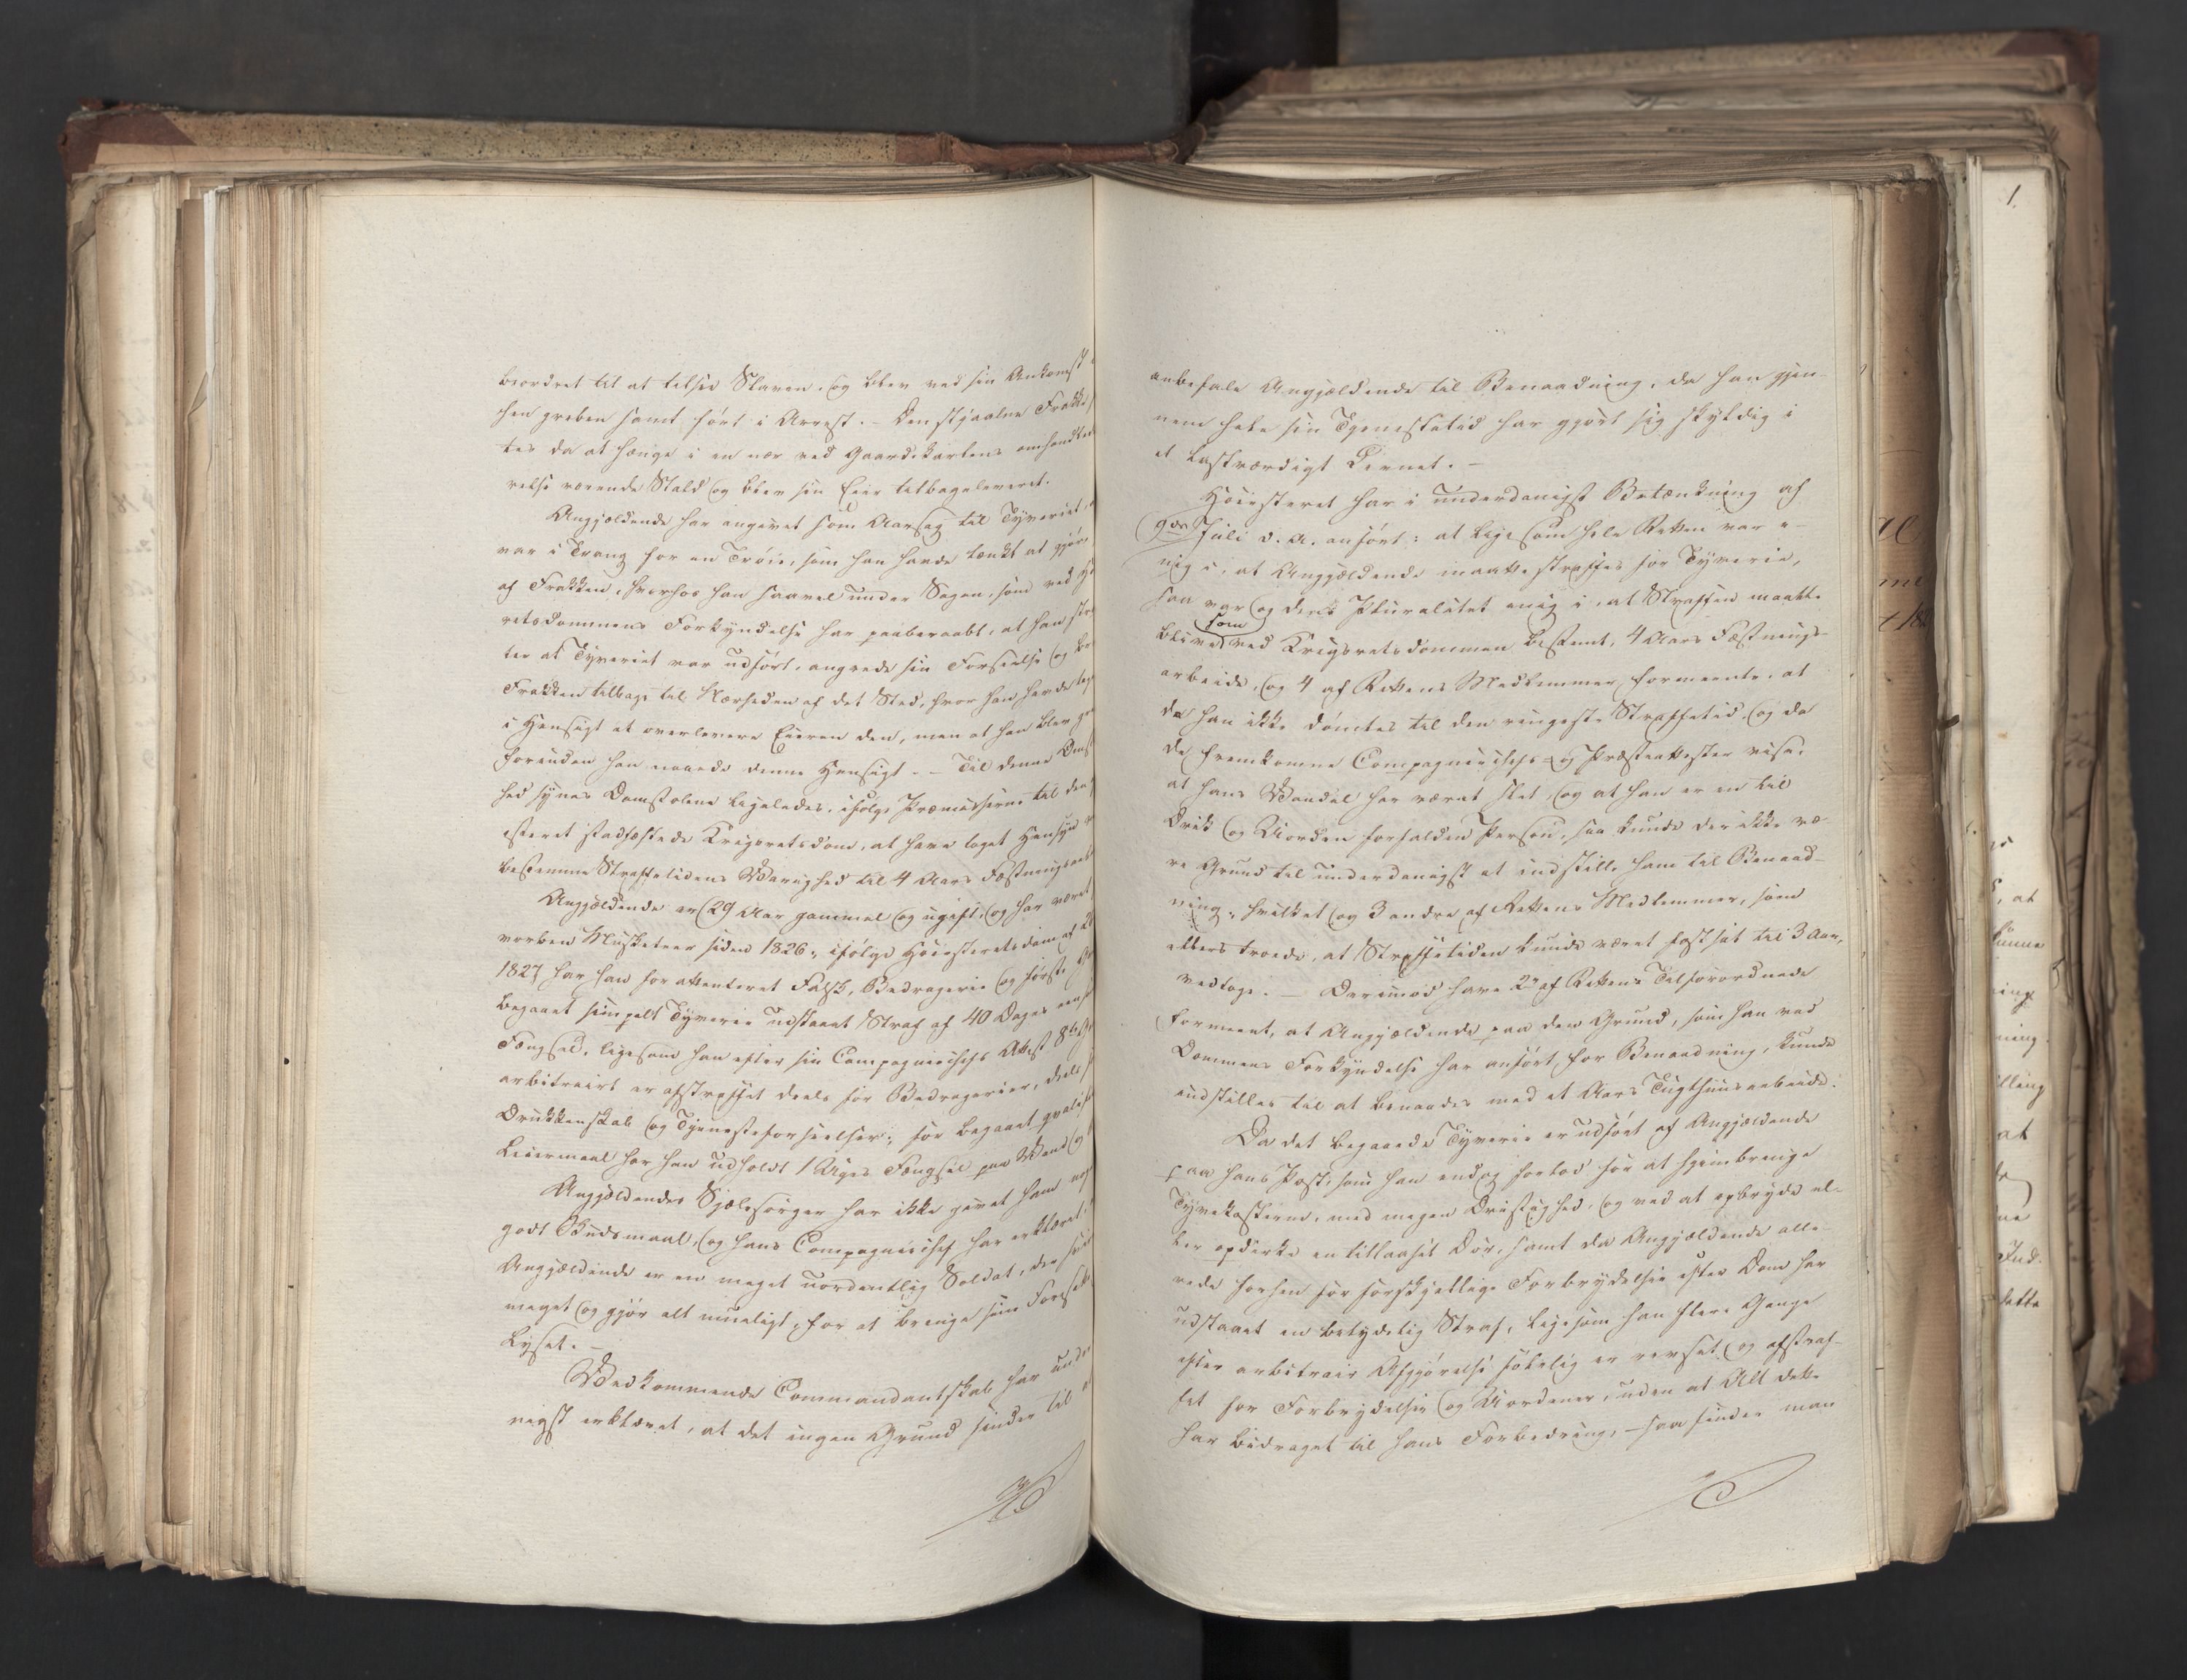 beordret til at tilsee Slaven, og blev ved sin Ankomst
hen greben samt ført i Arrest. – Den stjaalne Frakke
tes da at hænge i en nær ved Gaardskarlens omhandlede
relse værende Stald og blev sin Eier tilbageleveret.
Angjældende har angivet som Aarsag til Tyveriet,
var i Trang for en Trøie, som han havde tænkt at gjøre
af Frakken, hvorhos han saavel under Sagen, som ved
retsdommens Forkyndelse har paaberaabt, at han
ter at Tyveriet var udført, angrede sin Forseelse og
Frakken tilbage til Nærheden af det Sted, hvor han havde
i Hensigt at overlevere Eieren den, men at han blev
forinden han naaede denne Hensigt. – Til denne
hed synes Domstolene ligeledes, ifølge Præmisserne til den
esteret stadfæstede Krigsretsdom, at have taget Hensyn
bestemme Straffetidens Varighed til 4 Aars Fæstningsarb
Angjældende er 29 Aar gammel og ugift, og har været
vorben Musketeer siden 1826; ifølge Høiesteretsdom af
1827 har han for attenteret Falsk, Bedragerie og første
begaaet simpelt Tyverie udstaaet Straf af 40 Dages
Fængsel, ligesom han efter sin Compagniechefs Attest 8
arbitrairt er afstraffet deels for Bedragerier, deels
Drukkenskab og Tjenesteforseelser; for begaaet
Leiermaal har han udholdt 1 Uges Fængsel paa Vand og
Angjældendes Sjælesørger har ikke givet ham
godt Skudsmaal, og hans Compagniechef har erklæret
Angjældende er en meget uordentlig Soldat, der
meget og gjør alt mueligt, for at bringe sine
Lyset. –
Vedkommende Commandantskab har unde
nigst erklæret, at det ingen Grund finder til
anbefale Angjældende til Benaadning, da han gjen-
nem hele sin Tjenestetid har gjort sig skyldig i
et lastværdigt Levnet. –
Høiesteret har i underdanigst Betænkning af
9de Juli d. A. anført: at ligesom hele Retten var e-
nig i, at Angjældende maatte straffes for Tyverie,
saa var og dens Pluralitet enig i, at Straffen maatte
som
blive, ved Krigsretsdommen bestemt, 4 Aars Fæstnings-
arbeide, og 4 af Rettens Medlemmer formeente, at
da han ikke dømtes til den ringeste Straffetid, og da
de fremkomne Compagniechefs- og Præsteattester vise,
at hans Vandel har været slet, og at han er en til
Drik og Uorden forfalden Person, saa kunde der ikke væ-
re Grund til underdanigst at indstille ham til Benaad-
ning, hvilket og 3 andre af Rettens Medlemmer, som
ellers troede, at Straffetiden kunde været fastsat til 3 Aar,
vedtoge. – Derimod have 2 af Rettens Tilforordnede
formeent, at Angjældende paa den Grund, som han ved
Dommens Forkyndelse har anført for Benaadning, kunde
indstilles til at benaades med et Aars Tugthuusarbeide.
Da det begaaede Tyverie er udført af Angjældende
paa hans Post, som han endog forlod for at hjembringe
Tyvekosterne, med megen Dristighed, og ved at opbryde el-
ler opdirke en tillaaset Dør, samt da Angjældende alle-
rede forhen for forskjellige Forbrydelser efter Dom har
udstaaet en betydelig Straf, ligesom han flere Gange
efter arbitrair Afgjørelse følelig er revset og afstraf-
fet for Forbrydelser og Uordener, uden at Alt dette
har bidraget til hans Forbedring, – saa finder man
1.